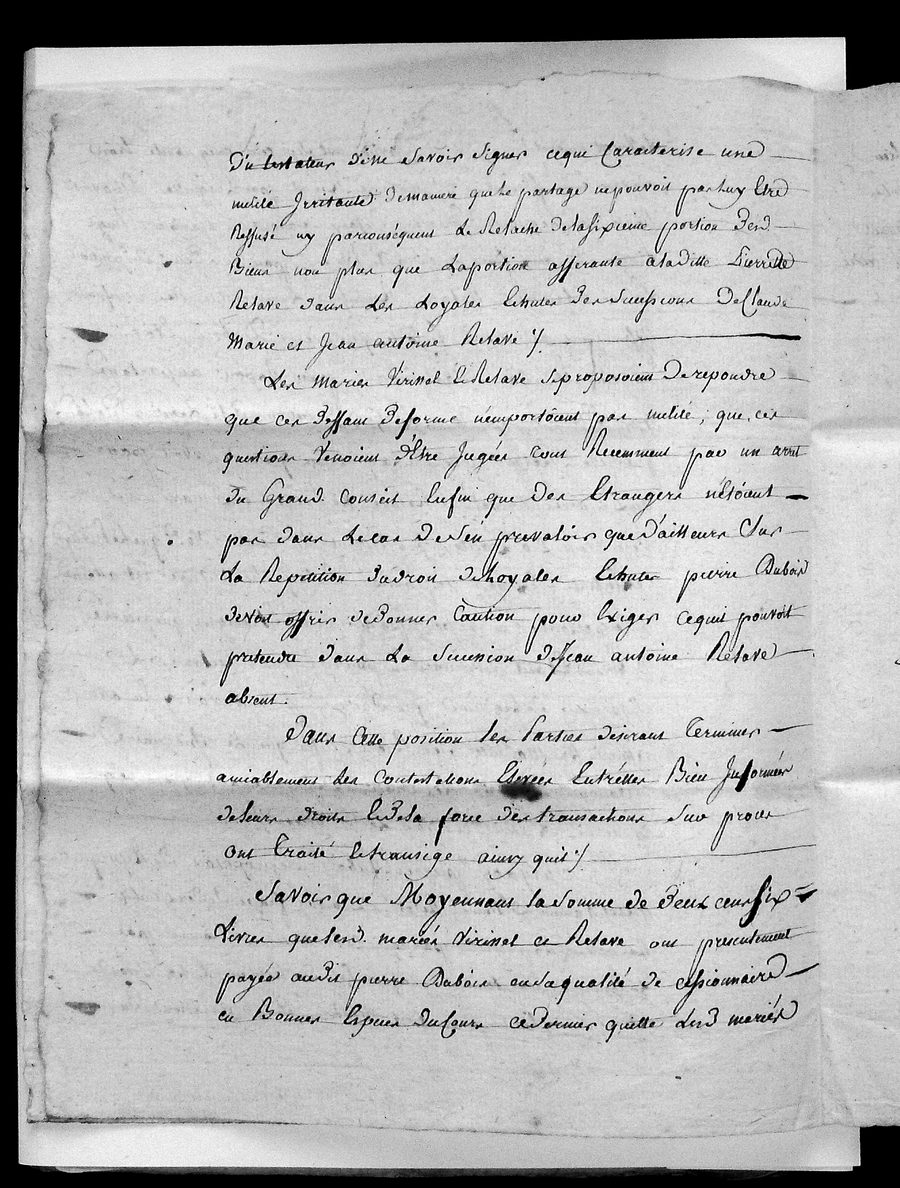 Du testateur d'ine savoir signer cequi Caracterise une
nulité Irritante Demaniere quele partage nepouvoit pasluy Etre
Reffusé ny parconséquent Le Relache delasixieme portion Desd.
Biens non plus que Laportion afferante aladitte Pierrette
Relave dans Les Loyales Echutes des successions DeClaude
Marie et Jean antoine Relave ./.
Les mariés Virissel Et Relave seproposoient Derepondre
que ces deffauts deforme n'emportoient pas nulité; que ces
questions Venoient d'Etre Jugées tout Recemment par un arret
du Grand Conseil Enfin que des Etrangers n'étoient
pas dans Lecas des'en prevaloir que d'ailleurs Sur
La Repetition dudroit deloyales Echutes pierre Dubois
devoit offrir dedonner Caution pour Exiger cequil pouvoit
pretendre dans La succession deJean antoine Relave
absent.
Dans Cette position les Parties désirant Terminer
amiablement Les Contestations Elevées Entr'elles Bien Informées
deleurs droits Et dela force des transactions sur procès
ont Traité Et transigé ainsy quil ./.
Savoir que Moyennant la somme de deux cens six
Livres quelesd. mariés Virissel et Relave ont presentement
payée audit pierre Dubois ensaqualité de cessionnaire
en Bonnes Especes duCours cedernier quitte Lesd mariés